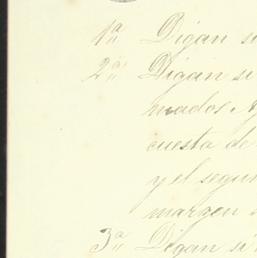 1ª Digan si
2ª Digan si
mados
cuesta de
y el segun
margen
3ª Digan si